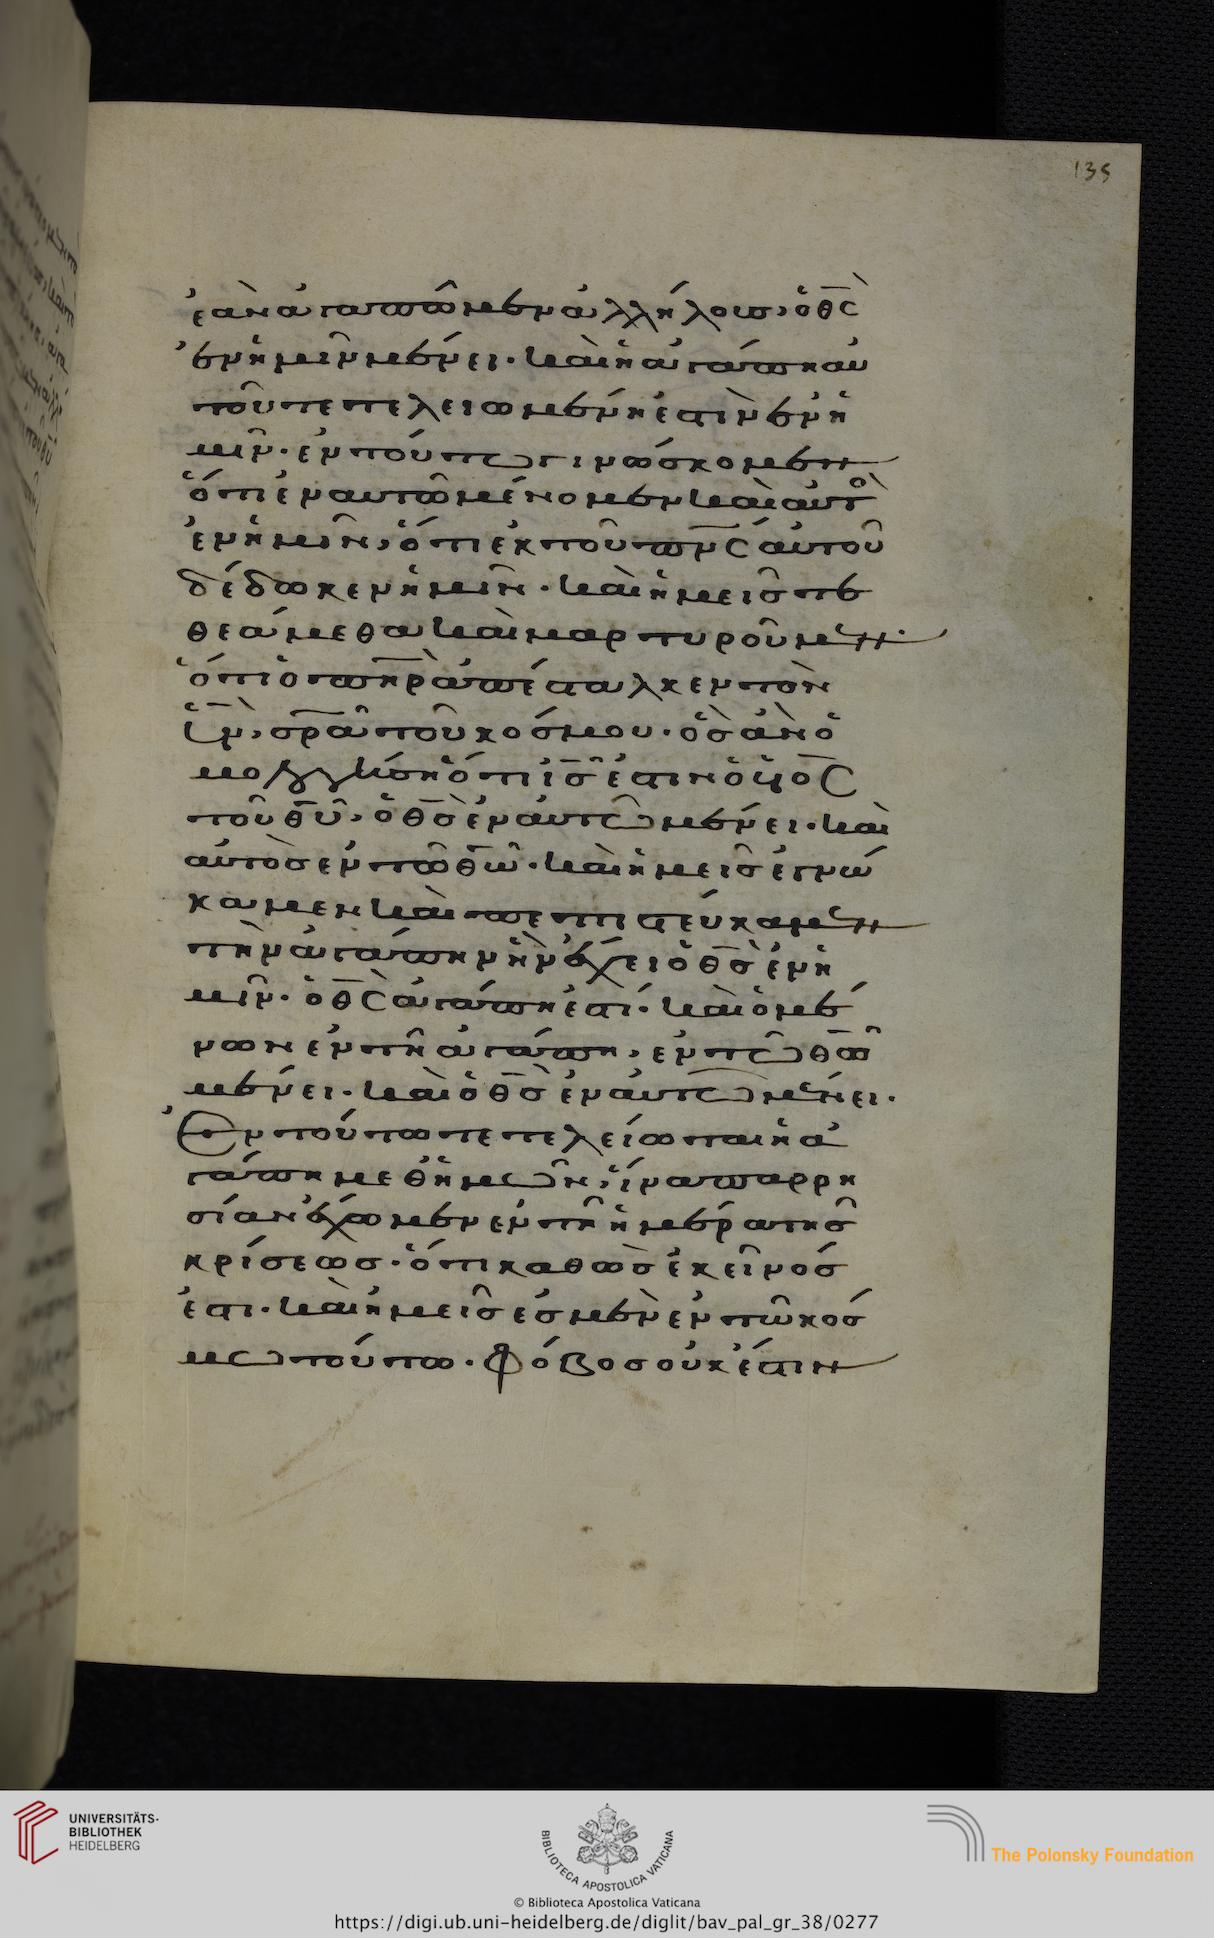 135
ἐὰν ἀγαπῶμεν ἀλλήλοις, ὁ θς
ἐν ἡμῖν μένει· καὶ ἡ ἀγάπη αὐ
τοῦ τετελειωμένη ἐστὶν ἐν ἡ
μῖν· ἐν τούτω γινώσκομεν
ὅτι ἐν αυτῶ μένομεν καὶ αὐτὸ
ἐν ἡμῖν, ὅτι ἐκ τοῦ πνς αὐτοῦ
δέδωκεν ἡμῖν· καὶ ἡμεῖς τε
θεάμεθα καὶ μαρτυροῦμεν·
ὅτι ὁ πηρ ἀπέσταλκεν τὸν
ὑν, σρα τοῦ κόσμου· ὃς ἂν ὁ
μολογήση ὅτι ις ἐστιν ὁ υἱὸς
τοῦ θυ, ὁ θς ἐν αὐτω μένει· καὶ
αὐτὸς ἐν τῶ θω· καὶ ἡμεῖς ἐγνώ
καμεν καὶ πεπιστεύκαμεν
τὴν ἀγάπην ἣν ἔχει ὁ θς ἐν ἡ
μῖν· ὁ θς ἀγάπη ἐστί· καὶ ὁ μέ
νων ἐν τῆ ἀγάπη, ἐν τω θω
μένει· καὶ ὁ θς ἐν αὐτω μένει·
Ἐν τούτω τετελείωται ἡ ἀ
γάπη μεθ ἡμῶν, ἵνα παρρη
σίαν ἔχωμεν ἐν τῆ ἡμέρα τῆς
κρίσεως· ὅτι καθὼς ἐκεῖνός
ἐστι· καὶ ἡμεῖς ἐσμὲν ἐν τῶ κόσ
μω τούτω· Φόβος οὐκ ἔστιν
UNIVERSITÄTS-
BIBLIOTHEK
HEIDELBERG
BIBLIOTECA APOSTOLICA VATICANA
The Polonsky Foundation
© Biblioteca Apostolica Vaticana
https://digi.ub.uni-heidelberg.de/diglit/bav_pal_gr_38/0277